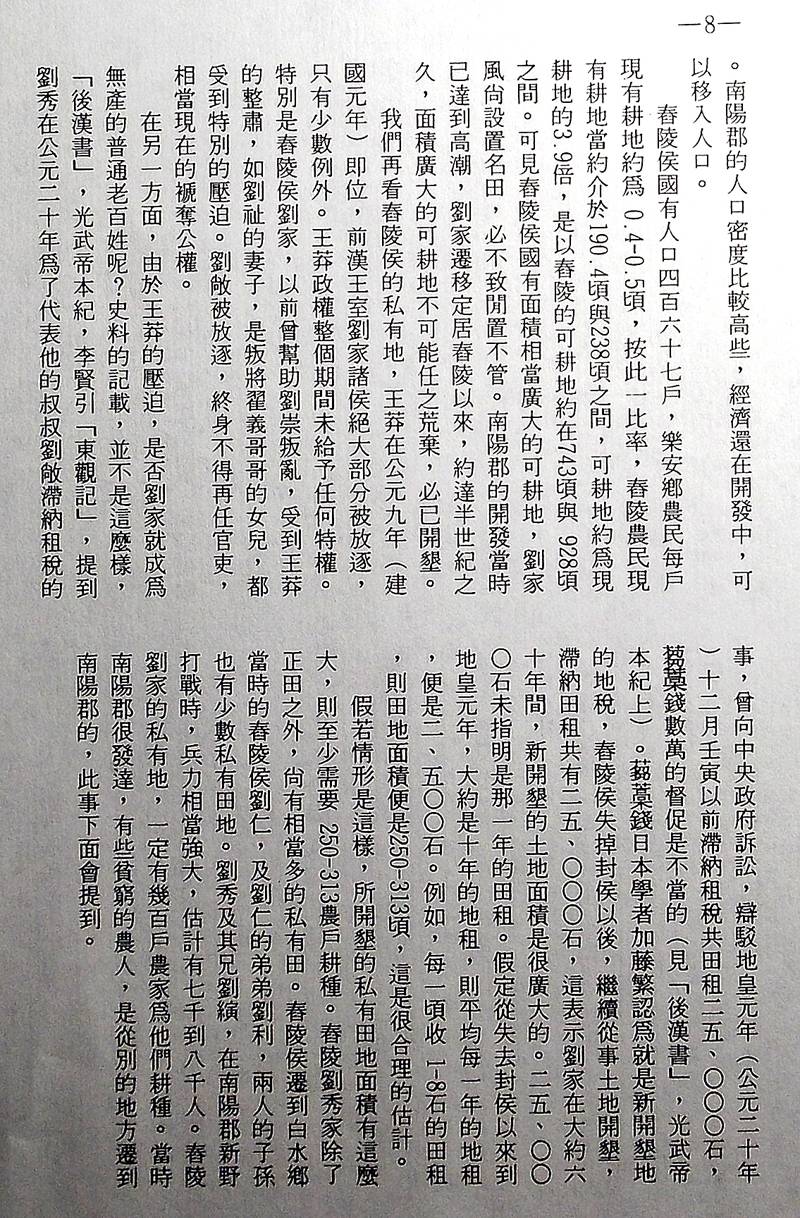 —8—
。南陽郡的人口密度比較高些，經濟還在開發中，可
以移入人口。
舂陵侯國有人口四百六十七戶，樂安鄉農民每戶
現有耕地約爲 0.4-0.5頃，按此一比率，舂陵農民現
有耕地當約介於190.4頃與238頃之間，可耕地約爲現
耕地的3.9倍，是以舂陵的可耕地約在743頃與 928頃
之間。可見舂陵侯國有面積相當廣大的可耕地，劉家
風尚設置名田，必不致閒置不管。南陽郡的開發當時
已達到高潮，劉家遷移定居舂陵以來，約達半世紀之
久，面積廣大的可耕地不可能任之荒棄，必已開墾。
我們再看舂陵侯的私有地，王莽在公元九年（建
國元年）即位，前漢王室劉家諸侯絕大部分被放逐，
只有少數例外。王莽政權整個期間未給予任何特權。
特別是舂陵侯劉家，以前曾幫助劉崇叛亂，受到王莽
的整肅，如劉祉的妻子，是叛將翟義哥哥的女兒，都
受到特別的壓迫。劉敞被放逐，終身不得再任官吏，
相當現在的褫奪公權。
在另一方面，由於王莽的壓迫，是否劉家就成爲
無產的普通老百姓呢？史料的記載，並不是這麼樣，
「後漢書」，光武帝本紀，李賢引「東觀記」，提到
劉秀在公元二十年爲了代表他的叔叔劉敞滯納租稅的
事，曾向中央政府訴訟，辯駁地皇元年（公元二十年
）十二月壬寅以前滯納租稅共田租二五、〇〇〇石，
芻藁錢數萬的督促是不當的（見「後漢書」，光武帝
本紀上）。芻藁錢日本學者加藤繁認爲就是新開墾地
的地稅，舂陵侯失掉封侯以後，繼續從事土地開墾，
滯納田租共有二五、〇〇〇石，這表示劉家在大約六
十年間，新開墾的土地面積是很廣大的。二五、〇〇
〇石未指明是那一年的田租。假定從失去封侯以來到
地皇元年，大約是十年的地租，則平均每一年的地租
，便是二、五〇〇石。例如，每一頃收 1-8石的田租
，則田地面積便是250-313頃，這是很合理的估計。
假若情形是這樣，所開墾的私有田地面積有這麼
大，則至少需要 250-313農戶耕種。舂陵劉秀家除了
正田之外，尚有相當多的私有田。舂陵侯遷到白水鄉
當時的舂陵侯劉仁，及劉仁的弟弟劉利，兩人的子孫
也有少數私有田地。劉秀及其兄劉縯，在南陽郡新野
打戰時，兵力相當強大，估計有七千到八千人。舂陵
劉家的私有地，一定有幾百戶農家爲他們耕種。當時
南陽郡很發達，有些貧窮的農人，是從別的地方遷到
南陽郡的，此事下面會提到。